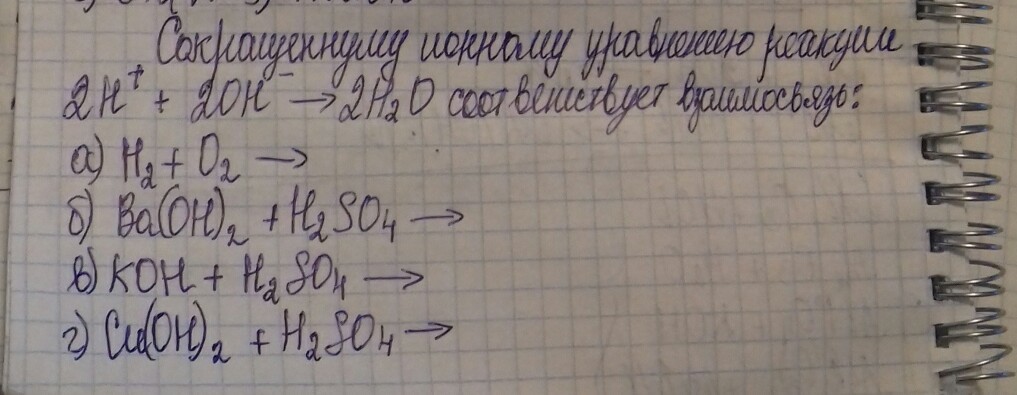 Сокращеннуму ионному уравнению реакции
2H⁺ + 2OH⁻ → 2H₂O соответствует взаимосвязь:
а) H₂ + O₂ →
б) Ba(OH)₂ + H₂SO₄ →
в) KOH + H₂SO₄ →
г) Cu(OH)₂ + H₂SO₄ →